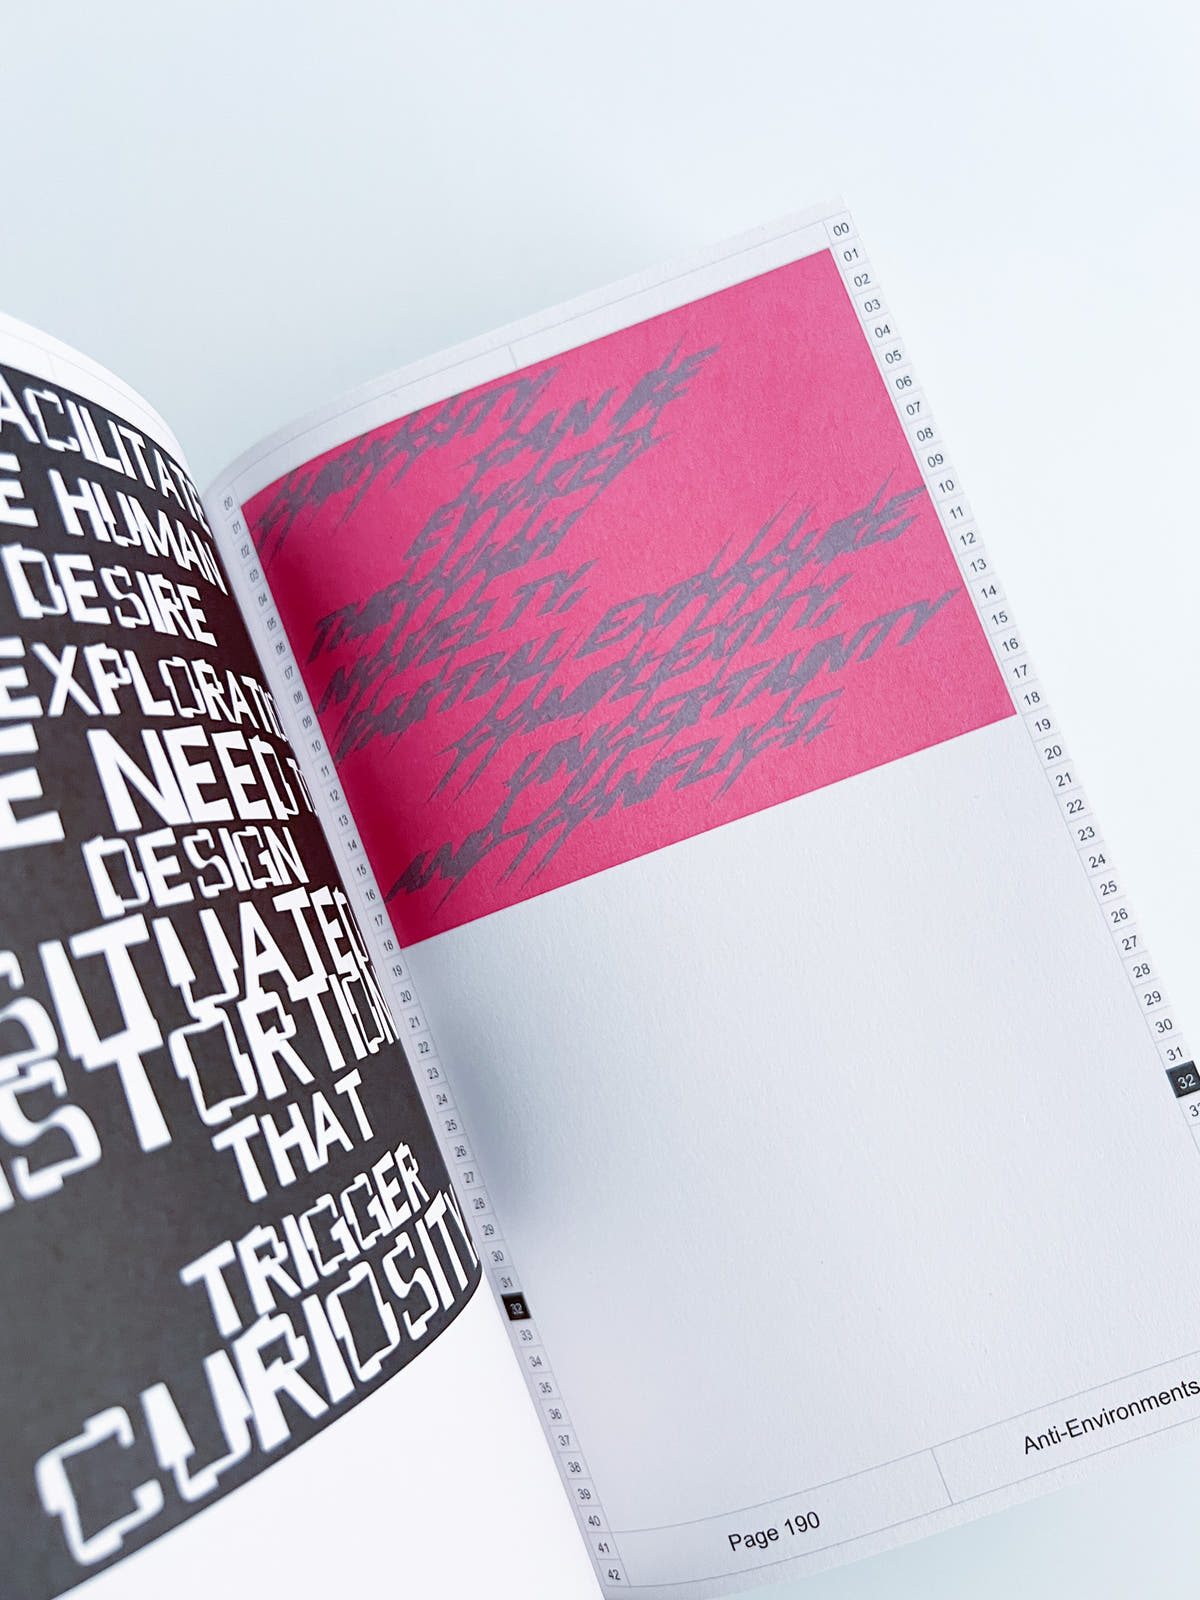 ACILITATE
E HUMAN
DESIRE
EXPLORATIO
E NEED T
DESIGN
SITUATED
ISTORTION
THAT
TRIGGER
CURIOSITY
00
01
02
03
04
05
06
07
08
09
10
11
12
13
14
15
16
17
18
19
20
21
22
23
24
25
26
27
28
29
30
31
32
33
34
35
36
37
38
39
40
41
42
CURIOSITY
CAN BE
EVOKED
THROUGH
NOVELTY,
PARTIAL EXPOSURE
COMPLEXITY,
UNCERTAINTY
AND CONFLICT.
00
01
02
03
04
05
06
07
08
09
10
11
12
13
14
15
16
17
18
19
20
21
22
23
24
25
26
27
28
29
30
31
32
Page 190
Anti-Environments